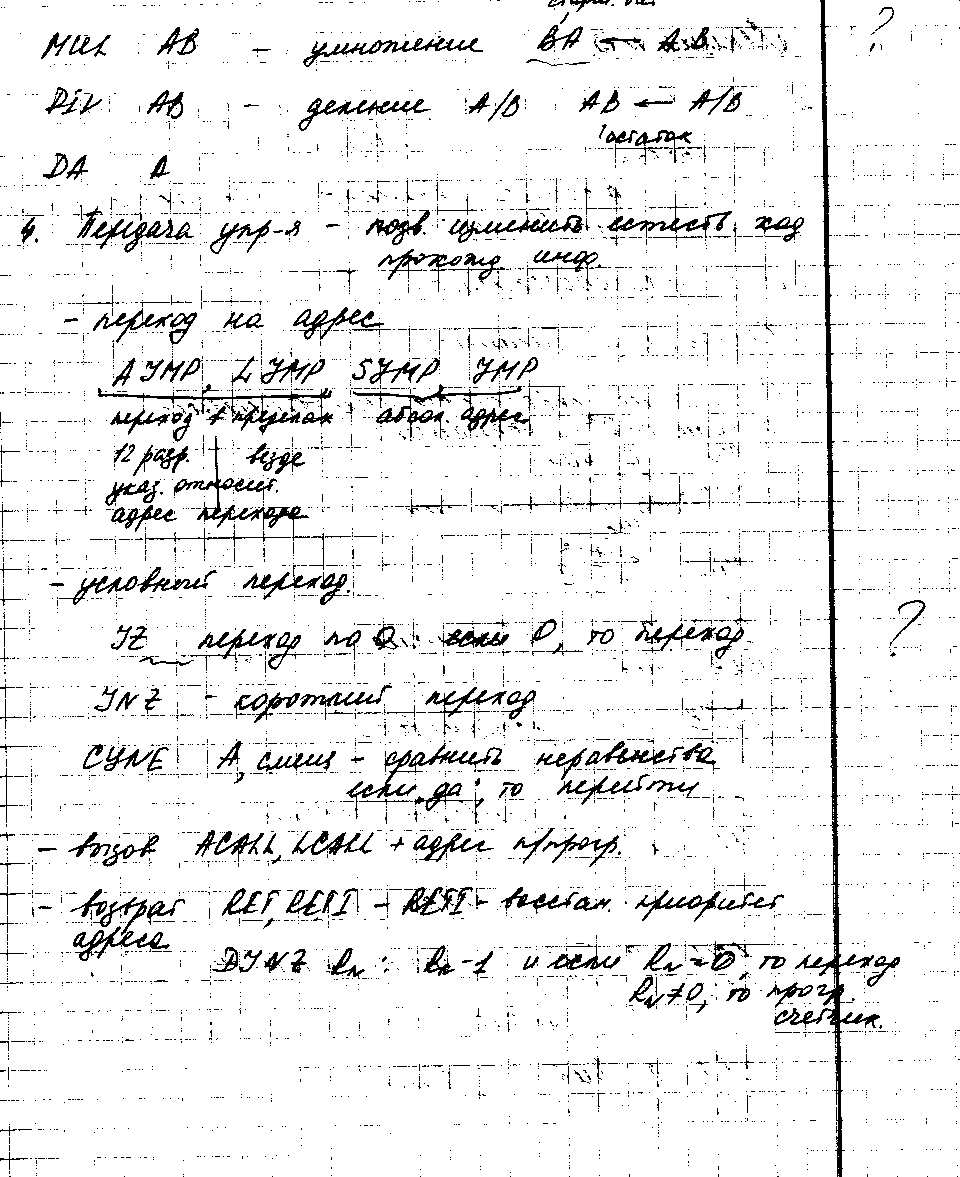 старш. бит
MUL AB – умножение BA ← A·B ?
DIV AB – деление A/B AB ← A/B
остаток
DA A
4. Передача упр-я – позв. изменить естеств. ход
прохожд. инф.
– переход на адрес
AJMP, LJMP, SJMP, JMP
переход в пределах абсол. адрес
12 разр. везде
указ. относит.
адрес перехода
– условный переход.
JZ переход по 0: если 0, то переход ?
JNZ – короткий переход
CJNE A, смещ – сравнить неравенства
если „да“, то перейти
– вызов ACALL, LCALL + адрес п/прогр.
– возврат RET, RETI – RETI – восстан. приоритет
адреса
DJNZ Rn: Rn-1 и если Rn=0, то переход
Rn≠0, то прогр.
счетчик.